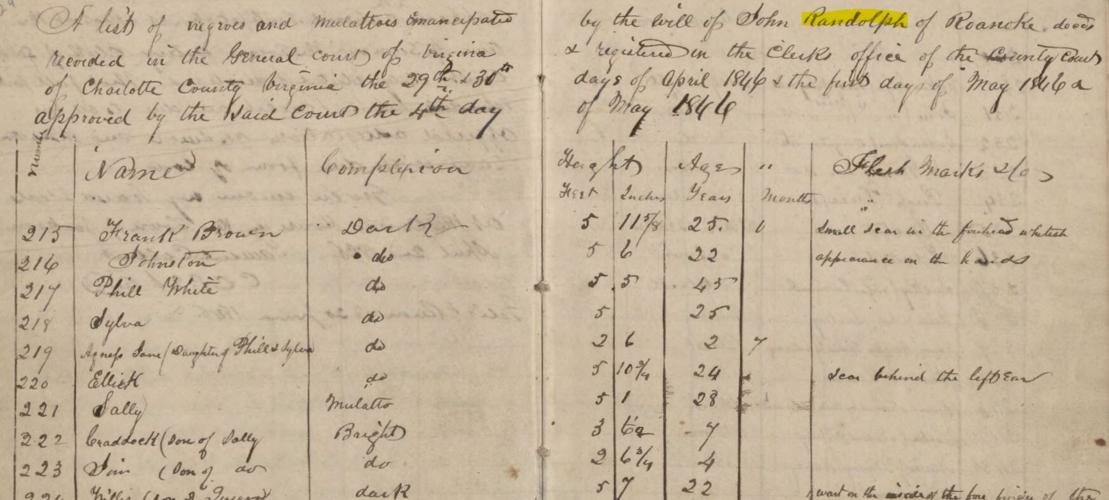 A list of negroes and Mulattoes Emancipated by the Will of John Randolph of Roanoke decd
recorded in the General court of Virginia & registered in the Clerks office of the County Court
of Charlotte County Virginia the 29th & 30th days of April 1846 & the first days of May 1846 &
approved by the said Court the 4th day of May 1846
Number Name Complexion Height Age " Flesh Marks &c
Feet Inches Years Months "
215 Frank Brown Dark 5 11 5/8 25. Small scar in the forehead whitish
216 Johnston do 5 6 22 appearance on the hands
217 Phill White do 5 .5 45
218 Sylva do 5 25
219 Agness Jane (Daughter of Phill & Sylva do 2 6 2 7
220 Ellick do 5 10 3/4 24 Scar behind the left Ear
221 Sally Mulatto 5 1 28
222 Craddock (Son of Sally Bright 3 7
223 Jim (Son of do do 2 6 3/4 4
dark 5 7 22 wart on the inside of the